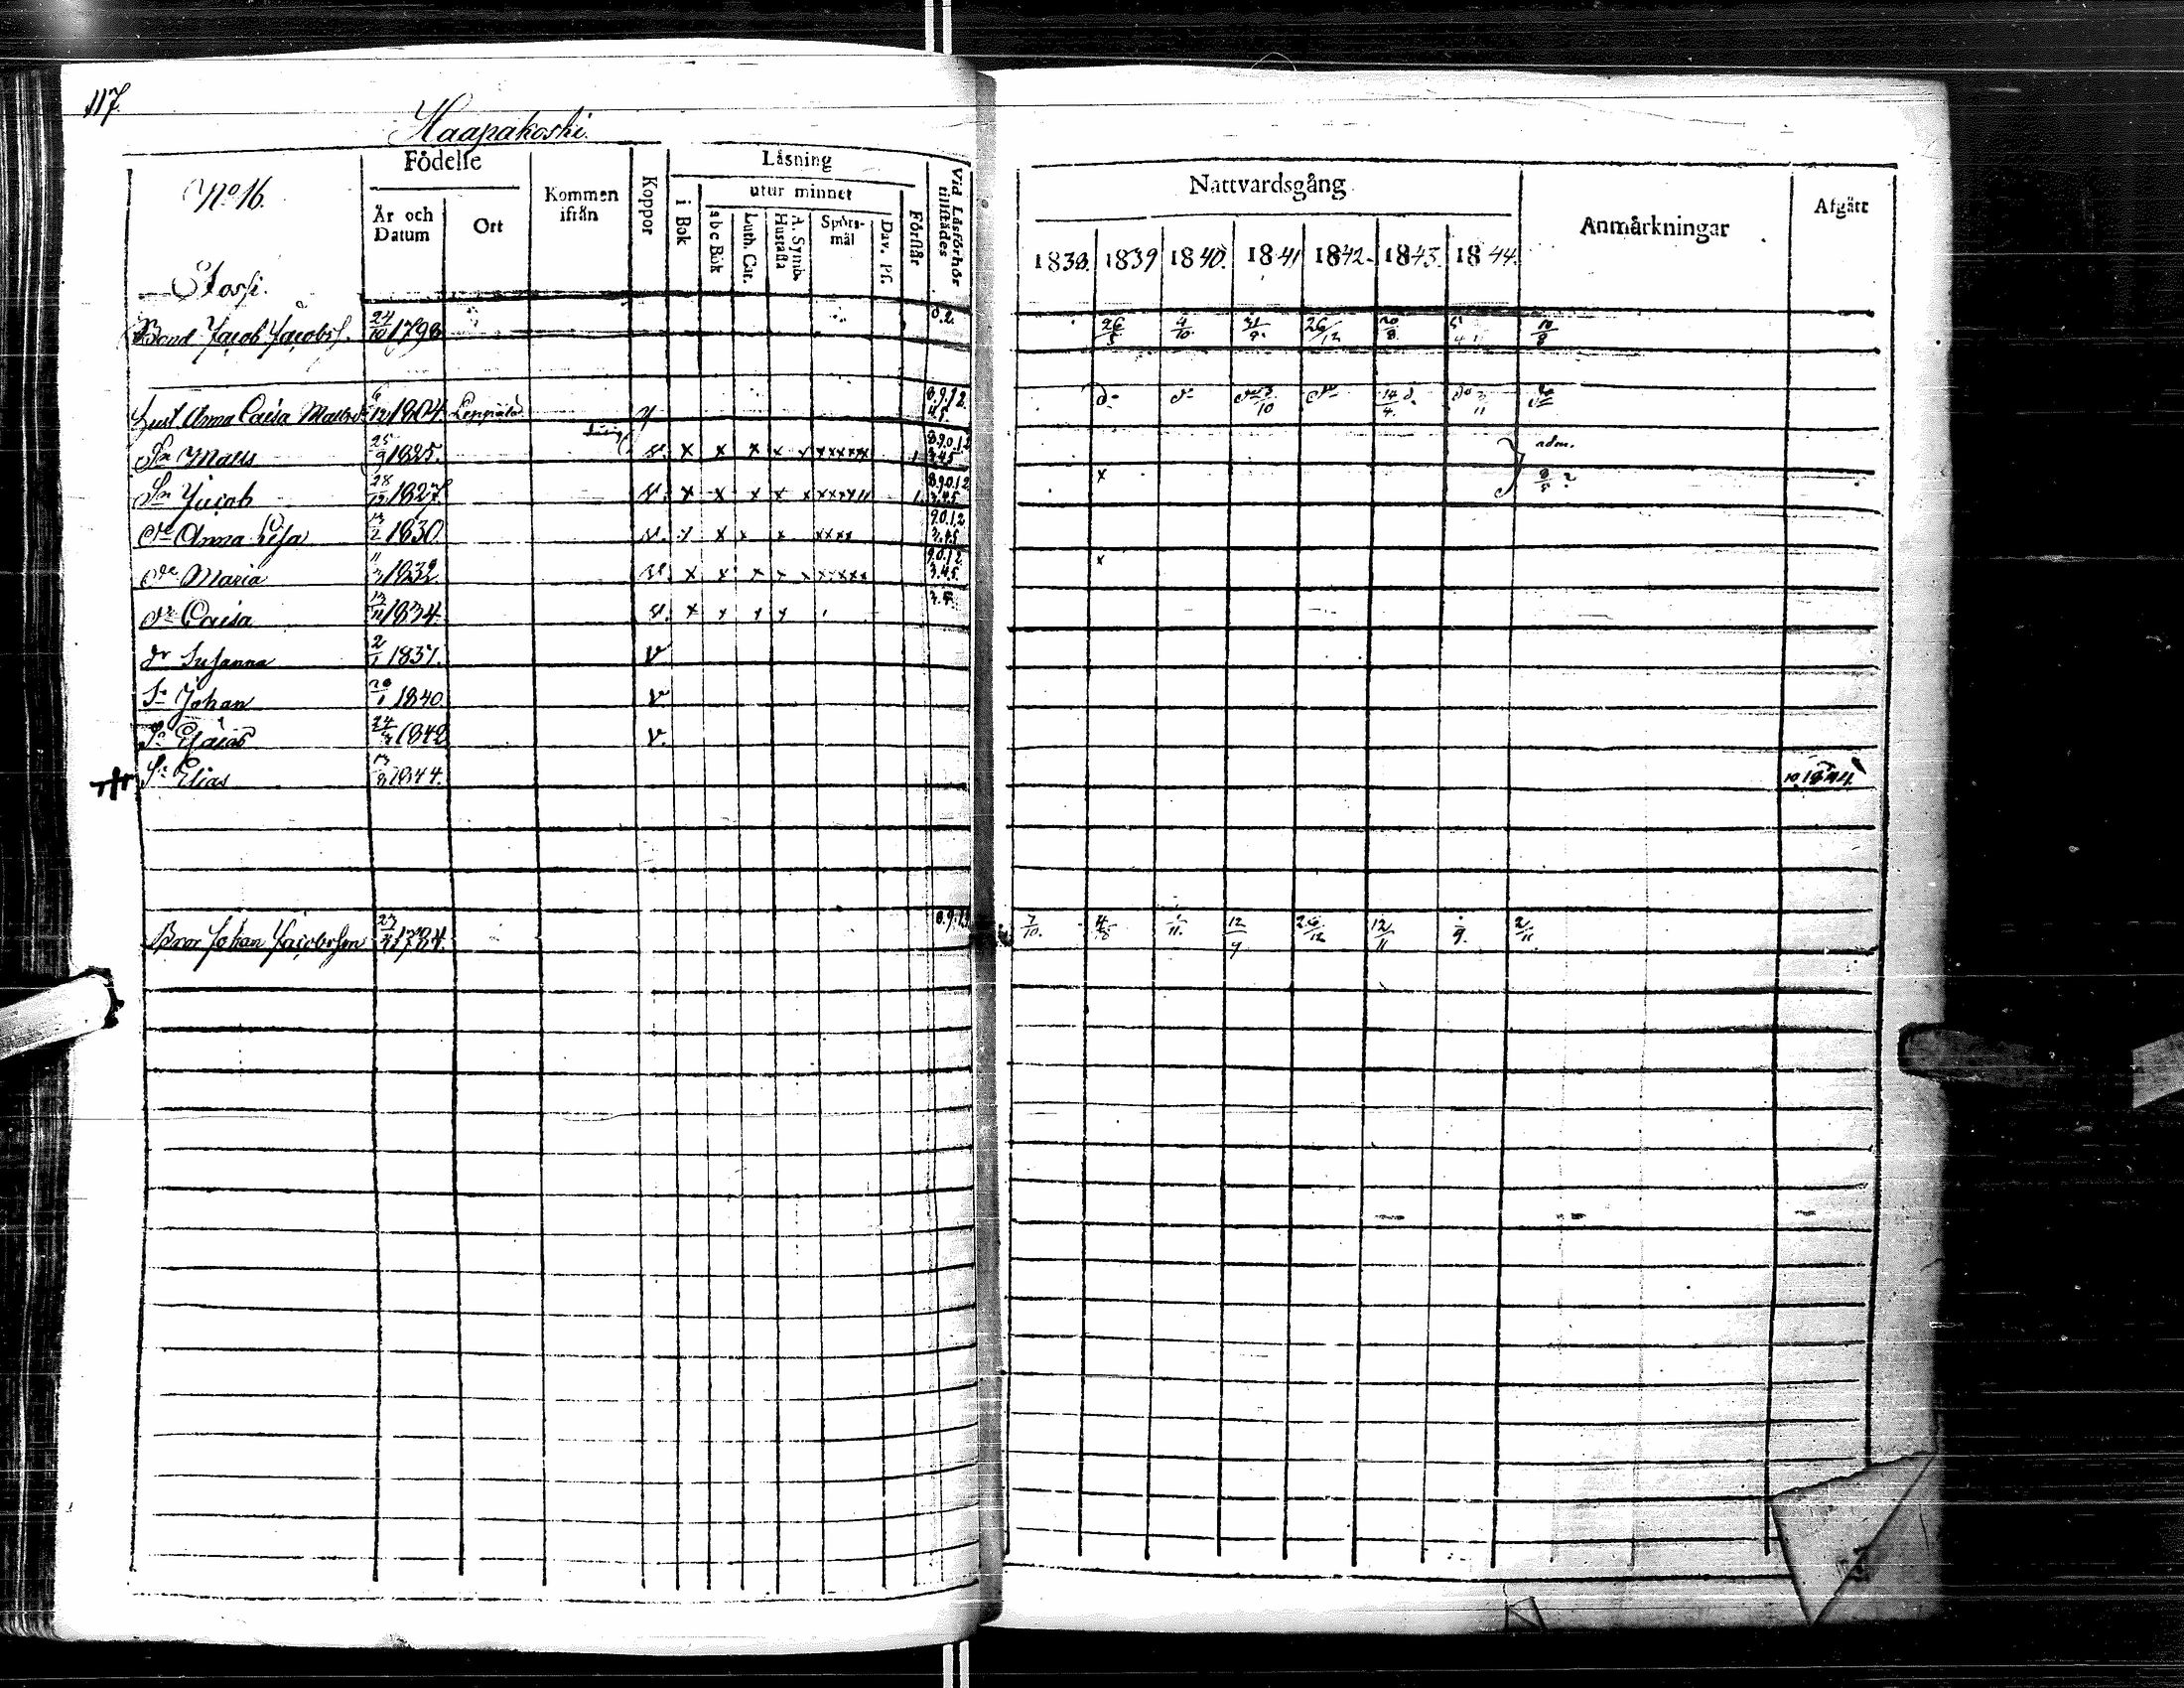 117.
Haapakoski.
No 16.
Födelse
Är och Datum
Ort
Kommen ifrån
Koppor
Låsning
i Bok
utur minnet
abc Bok
Luth. Cat.
Hustafla
A. Symb.
Spörs-mål
Dav. Pf.
Förstår
Vid Läsförhör tillstådes
Nattvardsgång
1838. 1839 1840. 1841 1842. 1843. 1844.
Anmårkningar
Afgått
Bond Jacob Jacobss. 24/12 1798 26/5 4/10 26/12 20/8 10/8
Hust Anna Caisa Matsd 6/12 1804. Leppälä 8.9.12. 4.5.
Sn Matts 25/9 1825. v x x x x x x x x x x 8.9.0.1.2 3.4.5 adm.
Sn Jacob 28/12 1827 v. x x x x x 8.9.0.1.2 3.4.5 x
dr Anna Lisa 1830. v. x x x x x x x x 9.0.1.2 3.4.5
dr Maria 11/3 1832. v. x x x x x x x x x 9.0.1.2. 3.4.5. x
dr Caisa 13/11 1834. v. x x x x 3.5.
dr Susanna 2/1 1837. v
Sn Johan 20/1 1840 v
Sn 24/7 1842 v.
Sn Elias 13/8 1844. 10 1844
Bror Johan Jacobsson 23/7 1784. 8.9.12 7/10. 4/8 12/9 26/12 12/11 9. 2/11.